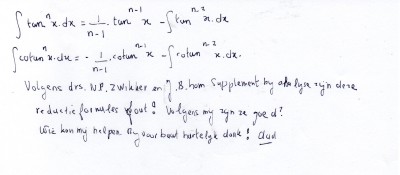 ∫ tanⁿ x.dx = 1/(n-1) . tanⁿ⁻¹ x - ∫ tanⁿ⁻² x.dx
∫ cotanⁿ x.dx = - 1/(n-1) . cotanⁿ⁻¹ x - ∫ cotanⁿ⁻² x.dx.
Volgens drs. W.P. Zwikker en J.B. ham Supplement by analyse zijn deze
reductie formules fout! Volgens my zyn ze goed?
Wie kan my helpen By voor baat hartelyk dank!